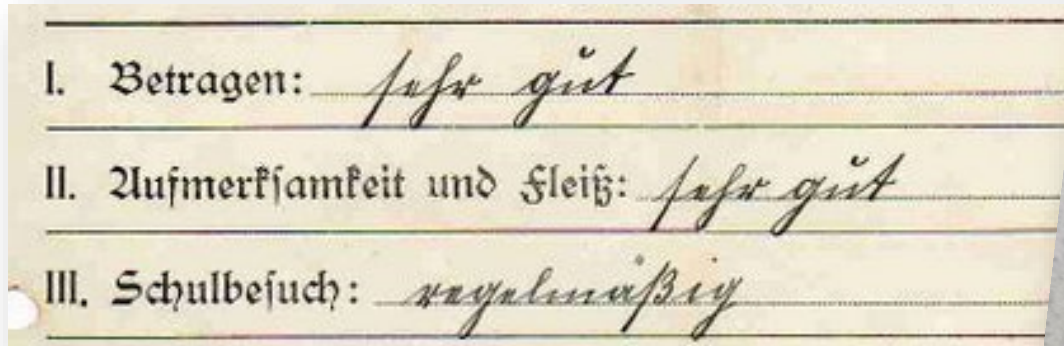 I. Betragen: sehr gut
II. Aufmerksamkeit und Fleiß: sehr gut
III. Schulbesuch: regelmäßig